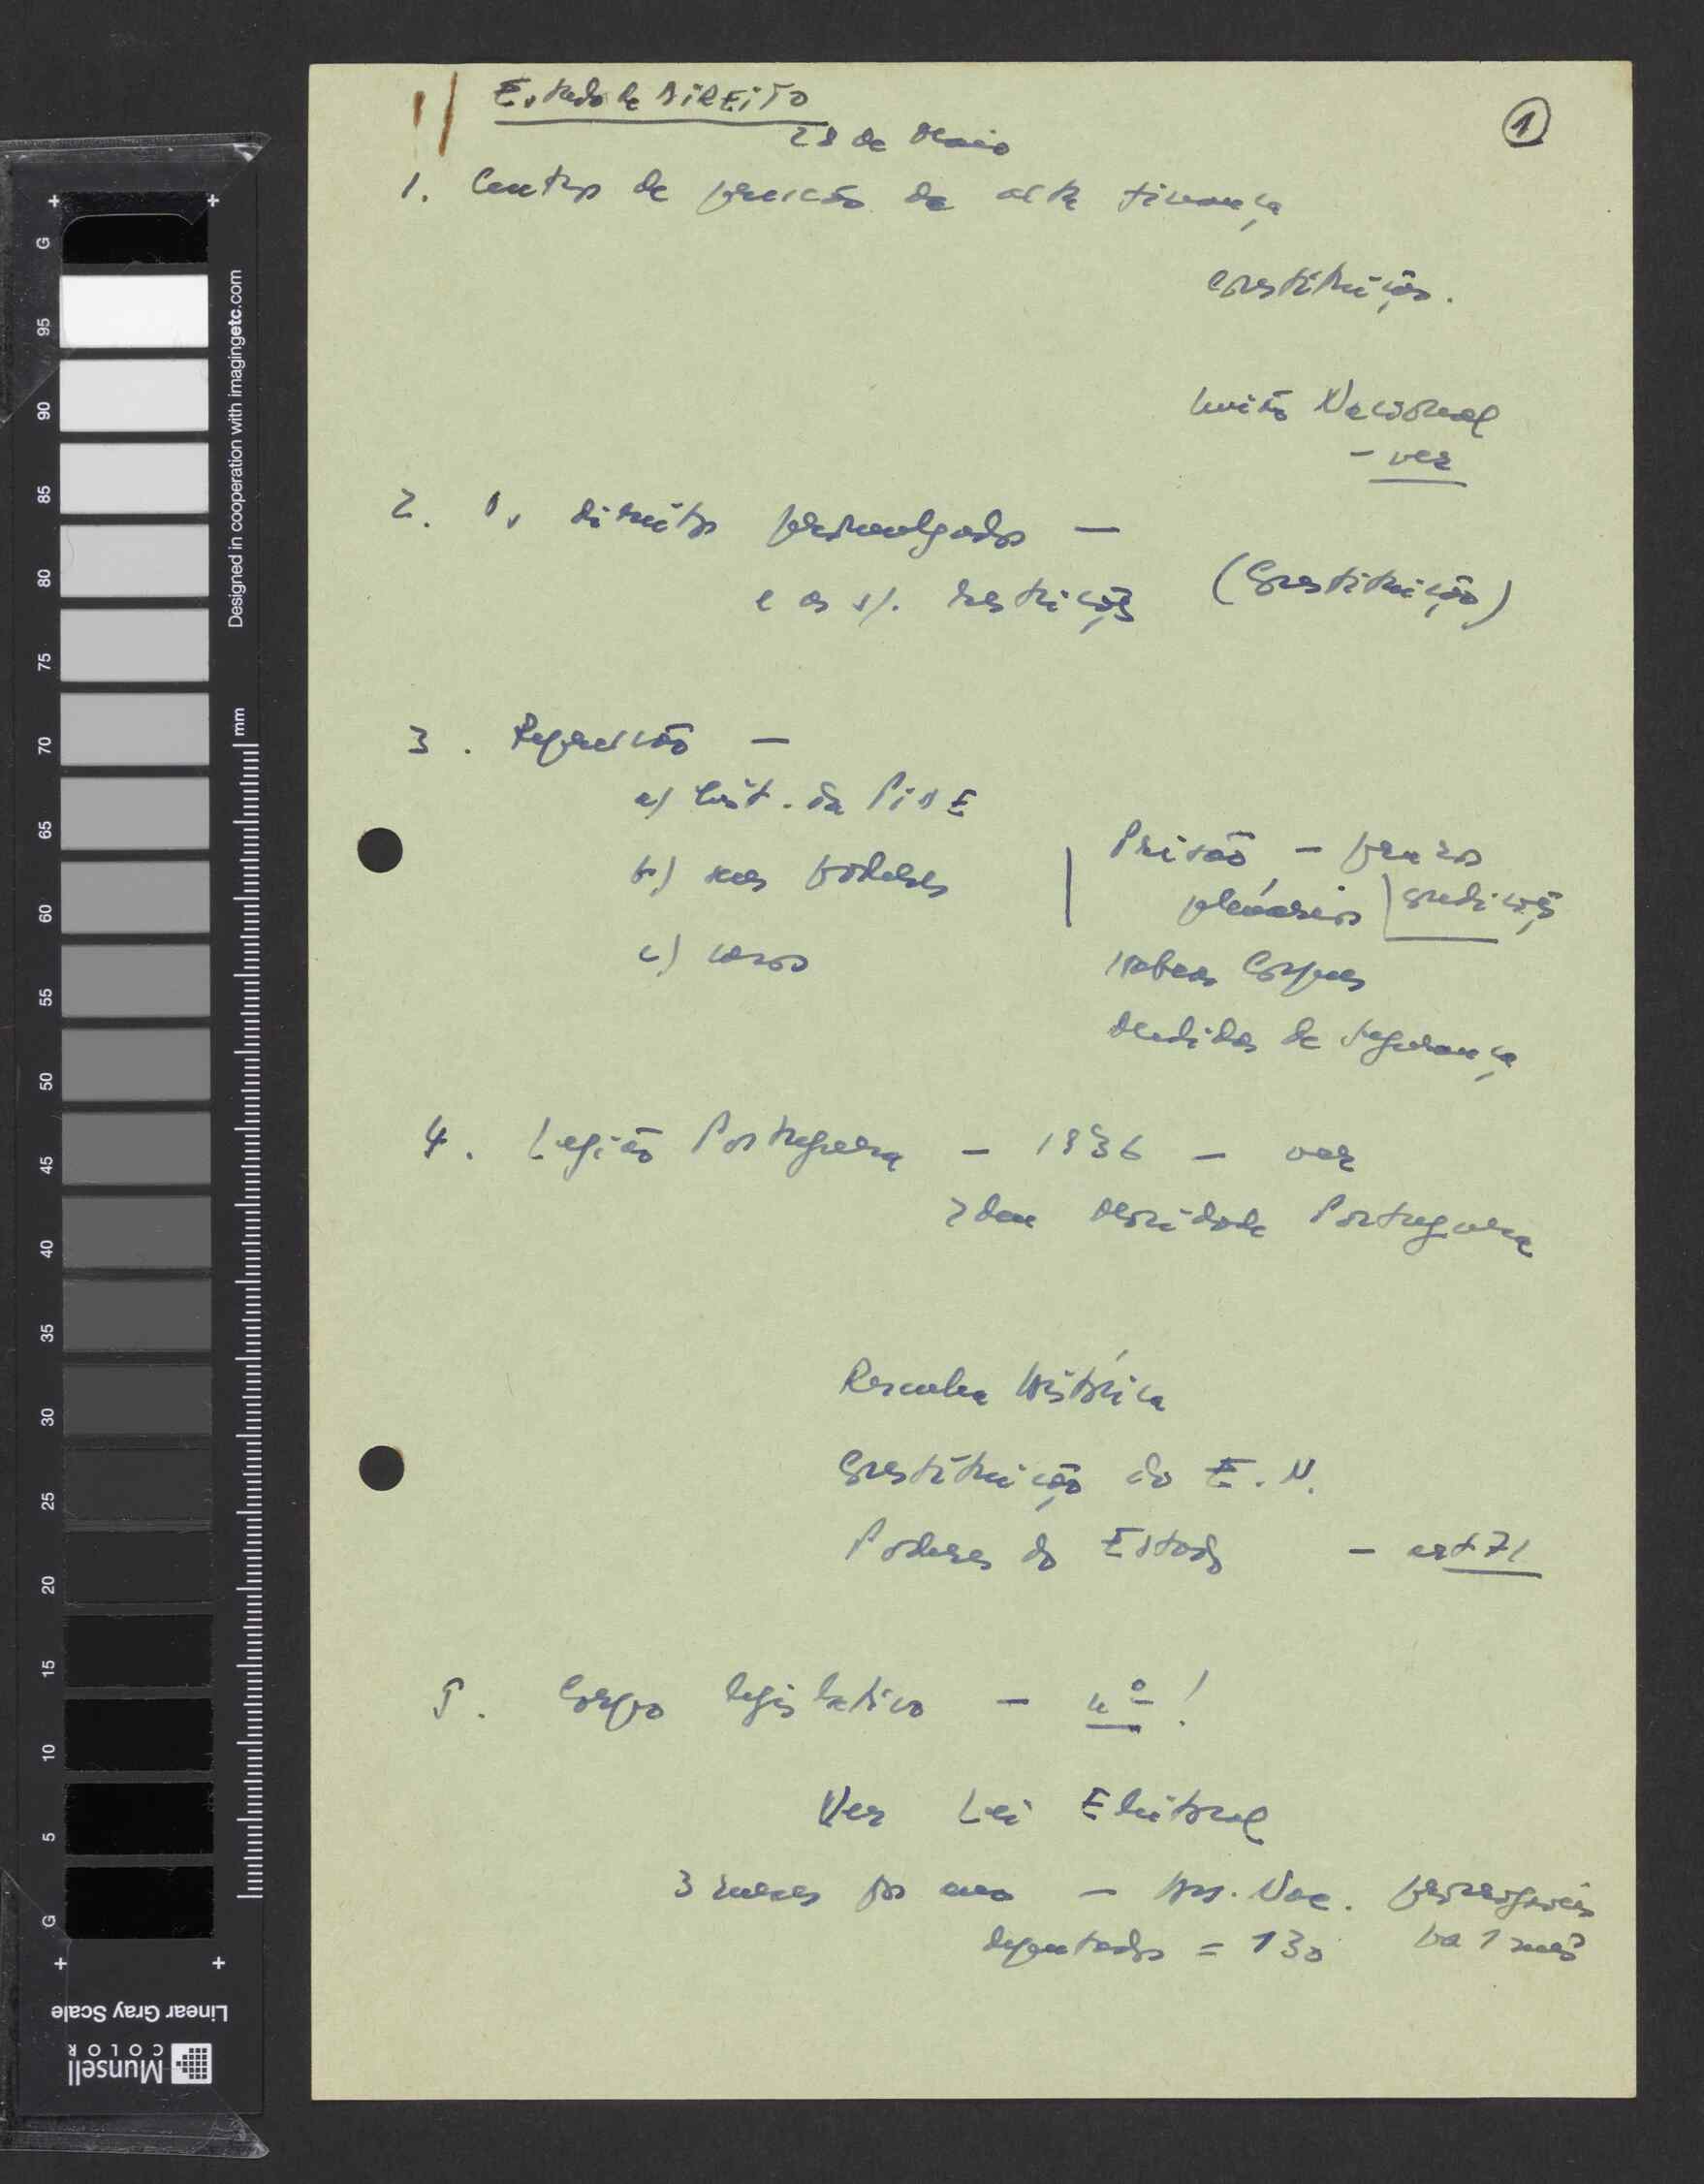 Estado de DIREITO
1
28 de Maio
1. Centros de pressão da alta finança
Constituição.
União Nacional
- ver
2. Os direitos promulgados —
e as s/. restrições (Constituição)
3. Repressão —
a) Inst. da PIDE
b) seus poderes
c) casos
Prisão - prazos
plenários | condições
Habeas Corpus
Medidas de Segurança
4. Legião Portuguesa - 1936 - ver
Idem Mocidade Portuguesa
Resenha Histórica
Constituição do E.N.
Poderes do Estado - art 71
5. Corpo legislativo - nº !
Ver Lei Eleitoral
3 meses por ano - Ass. Nac.
deputados = 130 1 mês
Designed in cooperation with imagingetc.com
mm
G 95 90 85 80 75 70 65 60 55 50 45 40 35 30 25 20 15 10 5 G
Linear Gray Scale
Munsell
COLOR